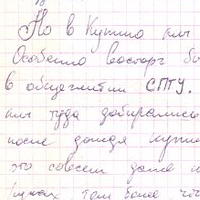 Но в Купино мы
Особенно восторг бы
в общежитии СПТУ.
мы туда добирались
после дождя купин
это совсем даже н
тем более что